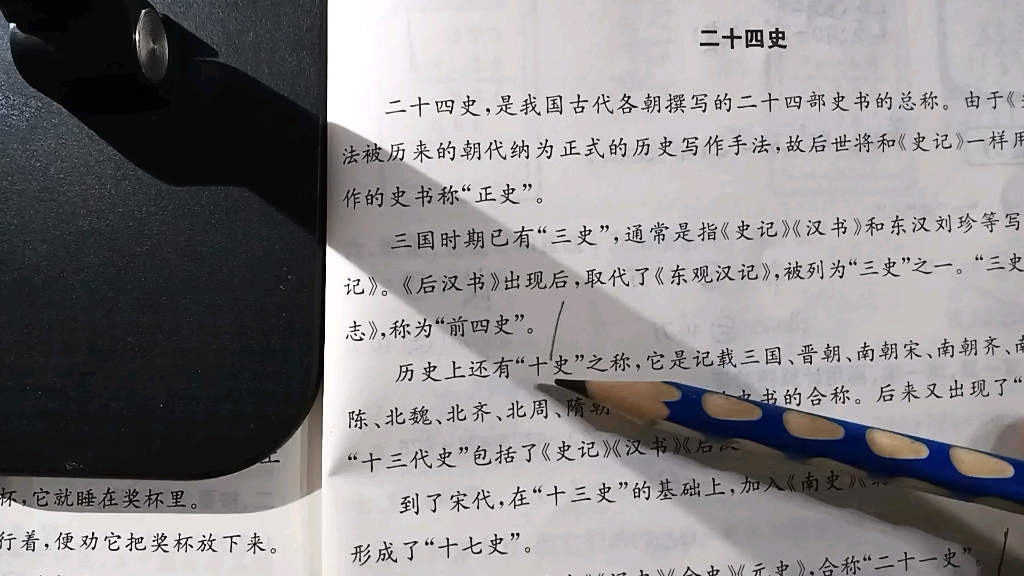 二十四史
二十四史,是我国古代各朝撰写的二十四部史书的总称。由于《
法被历来的朝代纳为正式的历史写作手法,故后世将和《史记》一样用
作的史书称“正史”。
三国时期已有“三史”,通常是指《史记》《汉书》和东汉刘珍等写
记》。《后汉书》出现后,取代了《东观汉记》,被列为“三史”之一。“三史
志》,称为“前四史”。
历史上还有“十史”之称,它是记载三国、晋朝、南朝宋、南朝齐、南
陈、北魏、北齐、北周、隋朝 史书的合称。后来又出现了“
“十三代史”包括了《史记》《汉书》《后汉
到了宋代,在“十三史”的基础上,加入《南史》《
形成了“十七史”。
《金史》《元史》,合称“二十一史”。
杯,它就睡在奖杯里。
行着,便劝它把奖杯放下来。